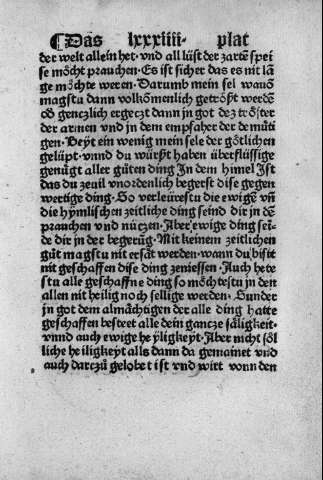 ¶Das lxxxiiii· plat
der welt allein het· vnd all lüst der zartē spei
se mo̊cht prauchen· Es ist sicher das es nit lā
ge mo̊chte weren· Darumb mein sel wauō
magstu dann volko̊menlich getro̊st werdē
oď genczlich ergeczt dann in got dez tro̊ster
der armen vnd in dem empfaher der demüti
gen· Beyt ein wenig mein sele der go̊tlichen
gelüpt· vnnd du würst haben überflüssige
genügt aller güten ding In dem himel Ist
das du zeuil vnordenlich begerst dise gegen
wertige ding· So verleürestu die ewigē vn̄
die hymlischen zeitliche ding seind dir in dē
prauchen vnd nüczen· Aber ewige ding sei‐
de dir in der begerüg· Mit keinem zeitlichen
güt magstu nit ersät werden· wann du bist
nit geschaffen dise ding zeniessen· Auch hete
stu alle geschaffne ding so mo̊chtestu in den
allen nit heilig noch sellige werden· Sunder
in got dem alma̋chtigen der alle ding hatte
geschaffen besteet alle dein gancze sa̋ligkeit·
vnnd auch ewige heyligkeyt· Aber nicht so̊l
liche heiligkeyt alls dann da gemainet vnd
auch darczü gelobet ist vnd wirt vonn den